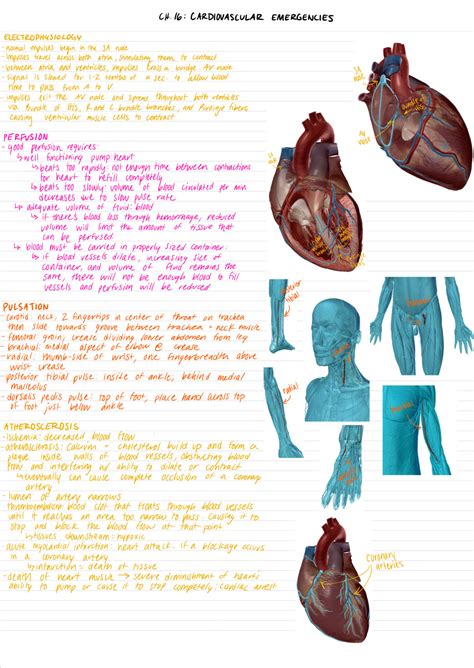 CH. 16: CARDIOVASCULAR EMERGENCIES
ELECTROPHYSIOLOGY
-normal impulses begin in the SA node
-impulses travel across both atria, stimulating them to contract
-between atria and ventricles, impulses cross a bridge AV node
-signal is slowed for 1-2 tenths of a sec to allow blood
time to pass from A to V
-impulses exit the AV node and spread throughout both ventricles
via Bundle of His, R and L bundle branches, and Purkinje fibers,
causing ventricular muscle cells to contract
PERFUSION
- good perfusion requires:
↳ well functioning pump heart
↳ beats too rapidly: not enough time between contractions
for heart to refill completely
↳ beats too slowly: volume of blood circulated per min
decreases due to slow pulse rate
↳ adequate volume of fluid: blood
↳ if there's blood loss through hemorrhage, reduced
volume will limit the amount of tissue that
can be perfused
↳ blood must be carried in properly sized container:
↳ if blood vessels dilate, increasing size of
container, and volume of fluid remains the
same, there will not be enough blood to fill
vessels and perfusion will be reduced
PULSATION
-carotid: neck, 2 fingertips in center of throat on trachea
then slide towards groove between trachea + neck muscle
-femoral: groin, crease dividing lower abdomen from leg
-brachial: medial aspect of elbow @ crease
-radial: thumb-side of wrist, one fingerbreadth above
wrist crease
-posterior tibial pulse: inside of ankle, behind medial
malleolus
-dorsalis pedis pulse: top of foot, place hand across top
of foot just below ankle
ATHEROSCLEROSIS
-ischemia: decreased blood flow
-atherosclerosis: calcium + cholesterol build up and form a
plaque inside walls of blood vessels, obstructing blood
flow and interfering w/ ability to dilate or contract
↳ eventually can cause complete occlusion of a coronary
artery
-lumen of artery narrows
thromboembolism: blood clot that floats through blood vessels
until it reaches an area too narrow to pass causing it to
stop and block the blood flow at that point
↳ tissues downstream: hypoxic
acute myocardial infarction: heart attack. if a blockage occurs
in a coronary artery
↳ infarction = death of tissue
-death of heart muscle → severe diminishment of heart's
ability to pump or cause it to stop completely: cardiac arrest
SA
node
AV
node
posterior
tibial
radial
coronary
arteries